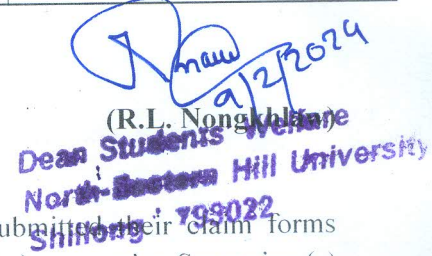 9/2/2024
(R.L. Nongkhlaw)
Dean Students Welfare
North-Eastern Hill University
Shillong - 793022
ubmitted their claim forms